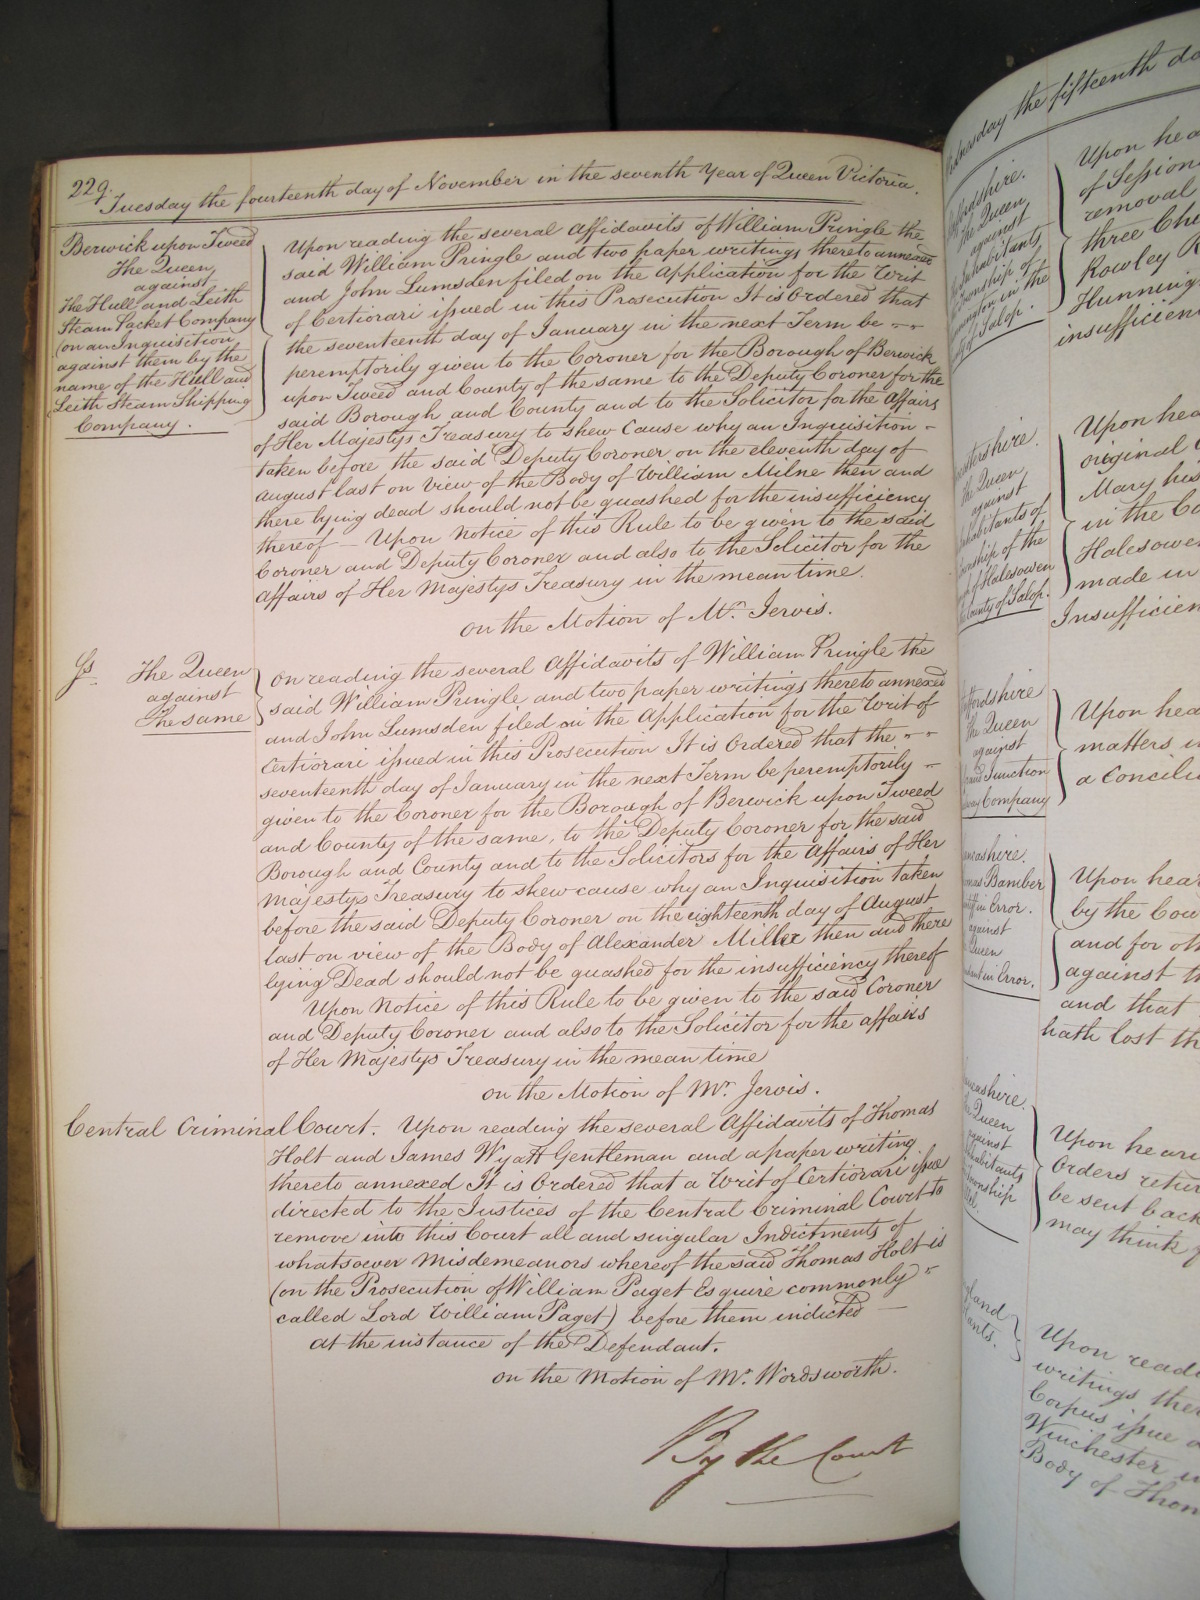 229.
Tuesday the fourteenth day of November in the seventh Year of Queen Victoria.
Berwick upon Tweed
The Queen
against
The Hull and Leith
Steam Packet Company
(on an Inquisition
against them by the
name of the Hull and
Leith Steam Shipping
Company.
Upon reading the several Affidavits of William Pringle the
said William Pringle and two paper writings thereto annexed
and John Lumsden filed on the Application for the Writ
of Certiorari issued in this Prosecution It is Ordered that
the seventeenth day of January in the next Term be
peremptorily given to the Coroner for the Borough of Berwick
upon Tweed and County of the same to the Deputy Coroner for the
said Borough and County and to the Solicitor for the Affairs
of Her Majestys Treasury to shew Cause why an Inquisition
taken before the said Deputy Coroner on the eleventh day of
August last on view of the Body of William Milne then and
there lying dead should not be quashed for the insufficiency
thereof — Upon Notice of this Rule to be given to the said
Coroner and Deputy Coroner and also to the Solicitor for the
Affairs of Her Majestys Treasury in the mean time.
on the Motion of Mr. Jervis.
The Queen
against
The same
On reading the several Affidavits of William Pringle the
said William Pringle and two paper writings thereto annexed
and John Lumsden filed on the Application for the Writ of
Certiorari issued in this Prosecution It is Ordered that the
seventeenth day of January in the next Term be peremptorily
given to the Coroner for the Borough of Berwick upon Tweed
and County of the same, to the Deputy Coroner for the said
Borough and County and to the Solicitors for the Affairs of Her
Majestys Treasury to shew cause why an Inquisition taken
before the said Deputy Coroner on the eighteenth day of August
last on view of the Body of Alexander Miller then and there
lying Dead should not be quashed for the insufficiency thereof
Upon Notice of this Rule to be given to the said Coroner
and Deputy Coroner and also to the Solicitor for the affairs
of Her Majestys Treasury in the mean time
on the Motion of Mr. Jervis.
Central Criminal Court. Upon reading the several Affidavits of Thomas
Holt and James Wyatt Gentleman and a paper writing
thereto annexed It is Ordered that a Writ of Certiorari issue
directed to the Justices of the Central Criminal Court to
remove into this Court all and singular Indictments of
whatsoever Misdemeanors whereof the said Thomas Holt is
(on the Prosecution of William Paget Esquire commonly
called Lord William Paget) before them indicted —
at the instance of the Defendant.
on the Motion of Mr. Wordsworth.
By the Court
the fifteenth
The Queen
against
Inhabitants
in the
of Salop.
Upon
of Session
removal
three
Rowley
insufficien
the Queen
against
of
of the
of Halesowen
County of Salop.
Upon
original
Mary his
in the
Halesowen
made in
Insufficien
The Queen
against
Junction
Company
Upon
matters
a
Bamber
in Error.
against
Queen
in Error.
Upon
by the
and for
against
and that
hath lost
Queen
against
Inhabitants
Upon
Orders
be sent back
may think
Upon
writings
Corpus issue
Winchester
Body of